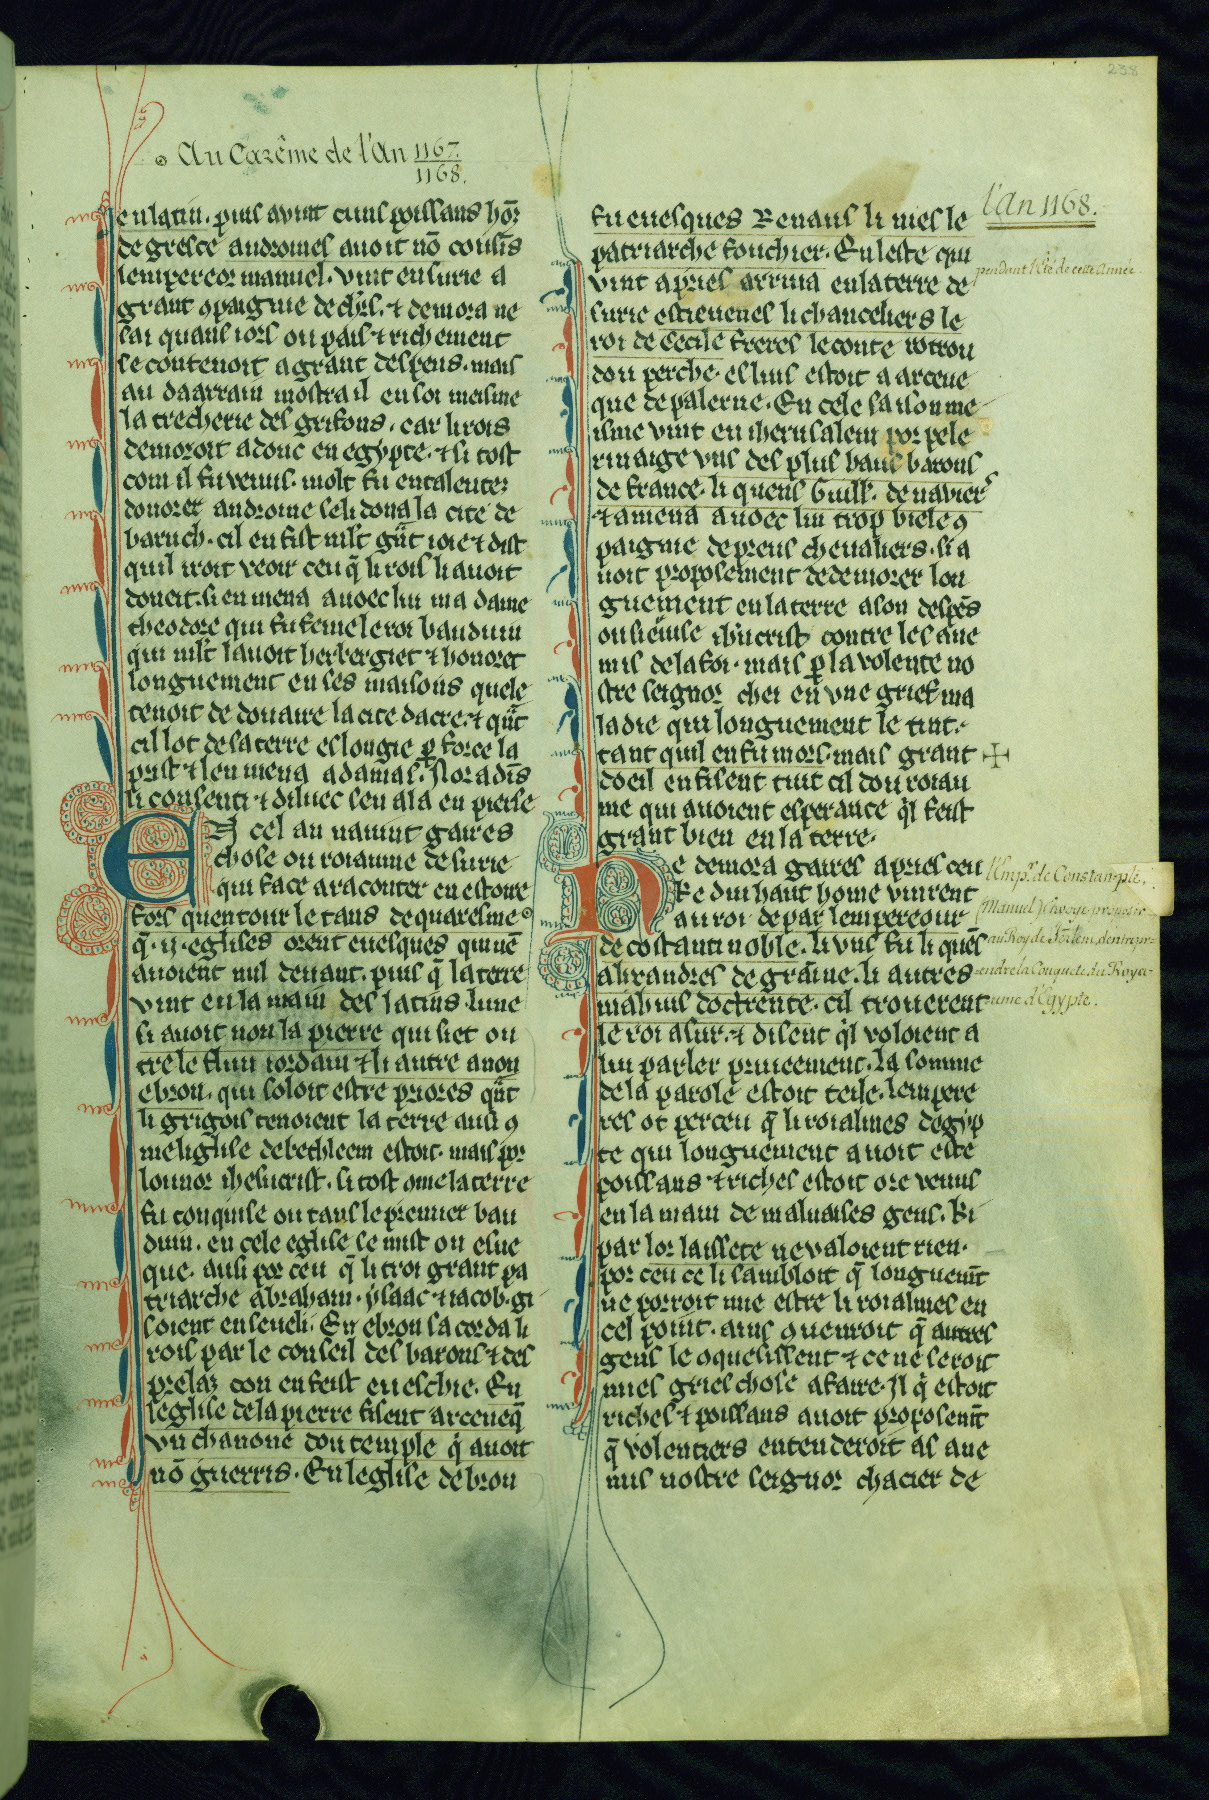 238
Au Carême de l'An 1167.
1168.
en latin. puis avint cuns poissans hōr
de gresce androines avoit nō cousīs
lempereor manuel. vint en surie a
grant ꝯpaignie de chrs. ⁊ demora ne
sai quans iors ou païs ⁊ richement
se contenoit a grant despens. mais
au daarrain mostra il en soi meisme
la trecherie des grifons. car li rois
demoroit adonc en egypte. ⁊ si tost
com il fu venus. molt fu entalentez
donorer androine se li dona la cite de
baruth. cil en fist mlt grāt ioie ⁊ dist
quil iroit veoir ceu q̄ li rois li avoit
doneit. si en mena avoec lui ma dame
theodore qui fu feme le roi bauduin
qui mlt lavoit herbergiet ⁊ honoret
longuement en ses maisons quele
tenoit de douaire la cite dacre. ⁊ quāt
cil lot de sa terre eslongie ꝑ force la
prist ⁊ len mena a damas. Noradīs
li consenti ⁊ diluec sen ala en pierse
En cel an navint gaires
chose ou roiaume de surie
qui face a raconter en estoire
fors quentour le tans de quaresme
q̄ .ij. eglises orent evesques qui nē
avoient nul devant. puis q̄ la terre
vint en la main des latins. lune
si avoit non la pierre qui siet ou
tre le flun iordain ⁊ li autre avou
ebron. qui soloit estre priores quāt
li grigois tenoient la terre ausi ꝯ
me liglise de bethleem estoit. mais por
lonnor ihesucrist. si tost ꝯme la terre
fu conquise ou tans le premier bau
duin. en cele eglise se mist on esve
que. ausi por ceu q̄ li troi grant pa
triarche abraham. ysaac ⁊ iacob. gi
soient enseveli. En ebron sa corda li
rois par le conseil des barons ⁊ des
prelaz con en feist eveschie. En
leglise de la pierre fisent arcevesq̄
vn chanone dou temple q̇ avoit
nō guerris. En leglise debron
fu evesques Renaus li nies le
patriarche fouchier. En leste qui
vint apries arriva en la terre de
surie estievenes li chanceliers le
roi de Cecile freres le conte rotrou
dou perche. eslius estoit a arceve
que de palerne. En cele saison me
isme vint en iherusalem por pele
rinaige vns des plus haus barons
de france. li quens Guill. de navier
⁊ amena avoec lui trop biele ꝯ
paignie de preus chevaliers. si a
voit proposement de demorer lon
guement en la terre a son despēs
ou service ihucrist contre les ane
mis de la foi. mais ꝑ la volente no
stre seignor chei en vne grief ma
ladie qui longuement le tint.
tant quil en fu mors. mais grant
doeil en fisent tuit cil dou roiau
me qui avoient esperance q̇l feist
grant bien en la terre.
Ne demora gaires apries ceu
ke dui haut home vinrent
au roi de par lempereour
de costantinoble. li vns fu li quēs
alixandres de graine. li autres
mahius doctrente. cil troverent
le roi a sur. ⁊ disent q̇l voloient a
lui parler priveement. La somme
de la parole estoit teile. lempere
res ot perceu q̄ li roialmes degyp
te qui longuement avoit este
poissans ⁊ riches estoit ore venus
en la main de malvaises gens. Ki
par lor laissete ne valoient rien.
por ceu ce li sambloit q̄ longuemt
ne porroit mie estre li roialmes en
cel point. ains ꝯvenroit q̄ autres
gens le ꝯquesissent ⁊ ce ne seroit
mies gries chose a faire. Il q̇ estoit
riches ⁊ poissans avoit proposemt
q̄ volentiers entenderoit as ane
mis nostre seignor chacier de
l'An 1168.
pendant l'Eté de cette Année.
l'Emp.r de Constan-ple,
(Manuel)
au Roy de d'entrepr-
endre la Conquete du Roya-
ume d'Egypte.